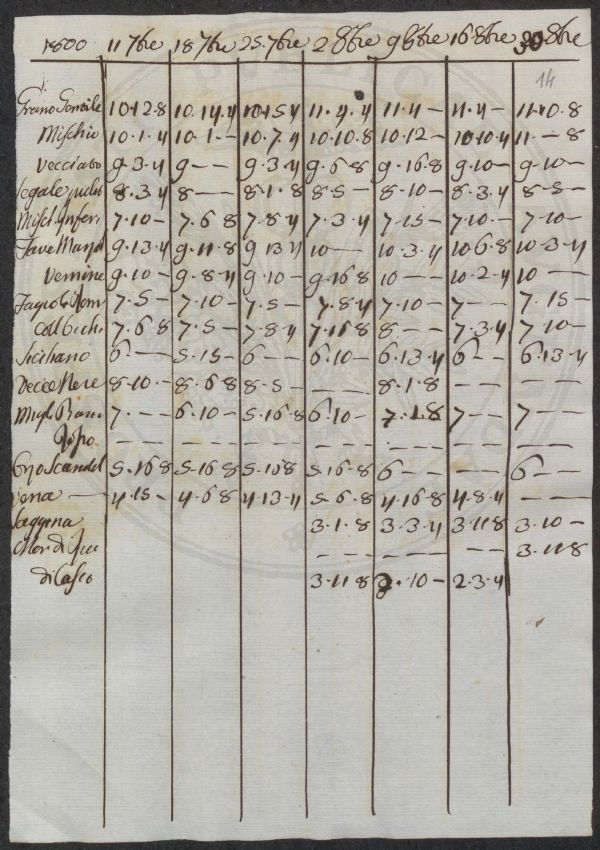 1800 11 7bre 18 7bre 25.7bre 2 8bre 9 8bre 16.8bre 30 8bre
14
Grano Gentile 10.12.8 10.14.4 10.15.4 11.4.4 11.4— 11.4— 11.10.8
Mischio 10.1.4 10.1— 10.7.4 10.10.8 10.12— 10.10.4 11.—8
Vecciato 9.3.4 9—— 9.3.4 9.6.8 9.16.8 9.10— 9.10—
Segale 8.3.4 8—— 8.1.8 8.5— 8.10— 8.3.4 8.5—
Misch Inferi 7.10— 7.6.8 7.8.4 7.3.4 7.15— 7.10— 7.10—
Fave 9.13.4 9.11.8 9.13.4 10—— 10.3.4 10.6.8 10.3.4
Vernine 9.10— 9.8.4 9.10— 9.16.8 10—— 10.2.4 10——
7.5— 7.10— 7.5— 7.8.4 7.10— 7—— 7.15—
Coll Occhi 7.6.8 7.5— 7.8.4 7.16.8 8—— 7.3.4 7.10—
Siciliano 6—— 5.15— 6—— 6.10— 6.13.4 6—— 6.13.4
Vecce Nere 8.10— 8.6.8 8.5— ——— 8.1.8 ——— ———
Migl 7.—— 6.10— 5.16.8 6.10— 7.1.8 7—— 7——
——— ——— ——— ——— ——— ——— ———
Orzo Scandel 5.16.8 5.16.8 5.16.8 5.16.8 6—— ——— 6——
Vena 4.15— 4.6.8 4.13.4 5.6.8 4.16.8 4.8.4 ———
Saggina 3.1.8 3.3.4 3.11.8 3.10—
——— ——— ——— 3.11.8
di Casco 3.11.8 10— 2.3.4